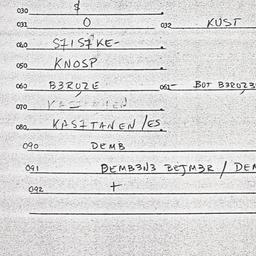 030
031 O 032 KUST
040 SZISZKE-
050 KNOSP
060 BƎRUZE 061- BOT BƎRUZƎ
070
080 KASZTANEN/ES
090 DEMB
091 DEMBƎNƎ BEJMƎR / DEM
092 +